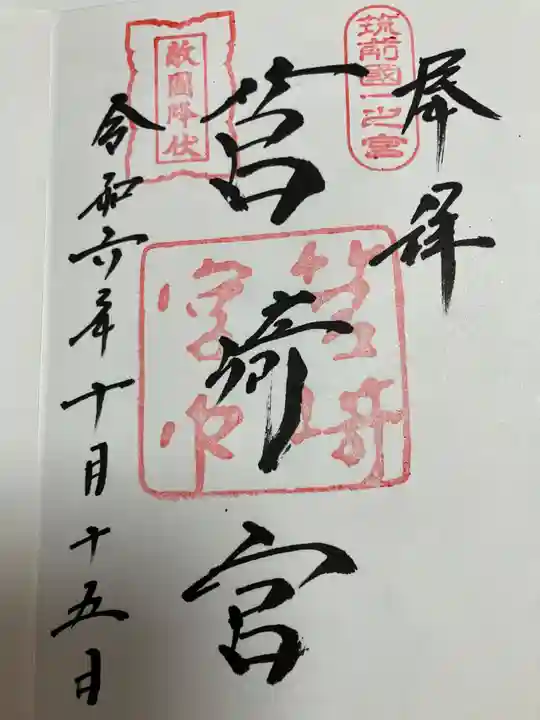 奉拝
筑前國一之宮
筥崎宮
筥崎
宮印
敵國降伏
令和六年十月十五日